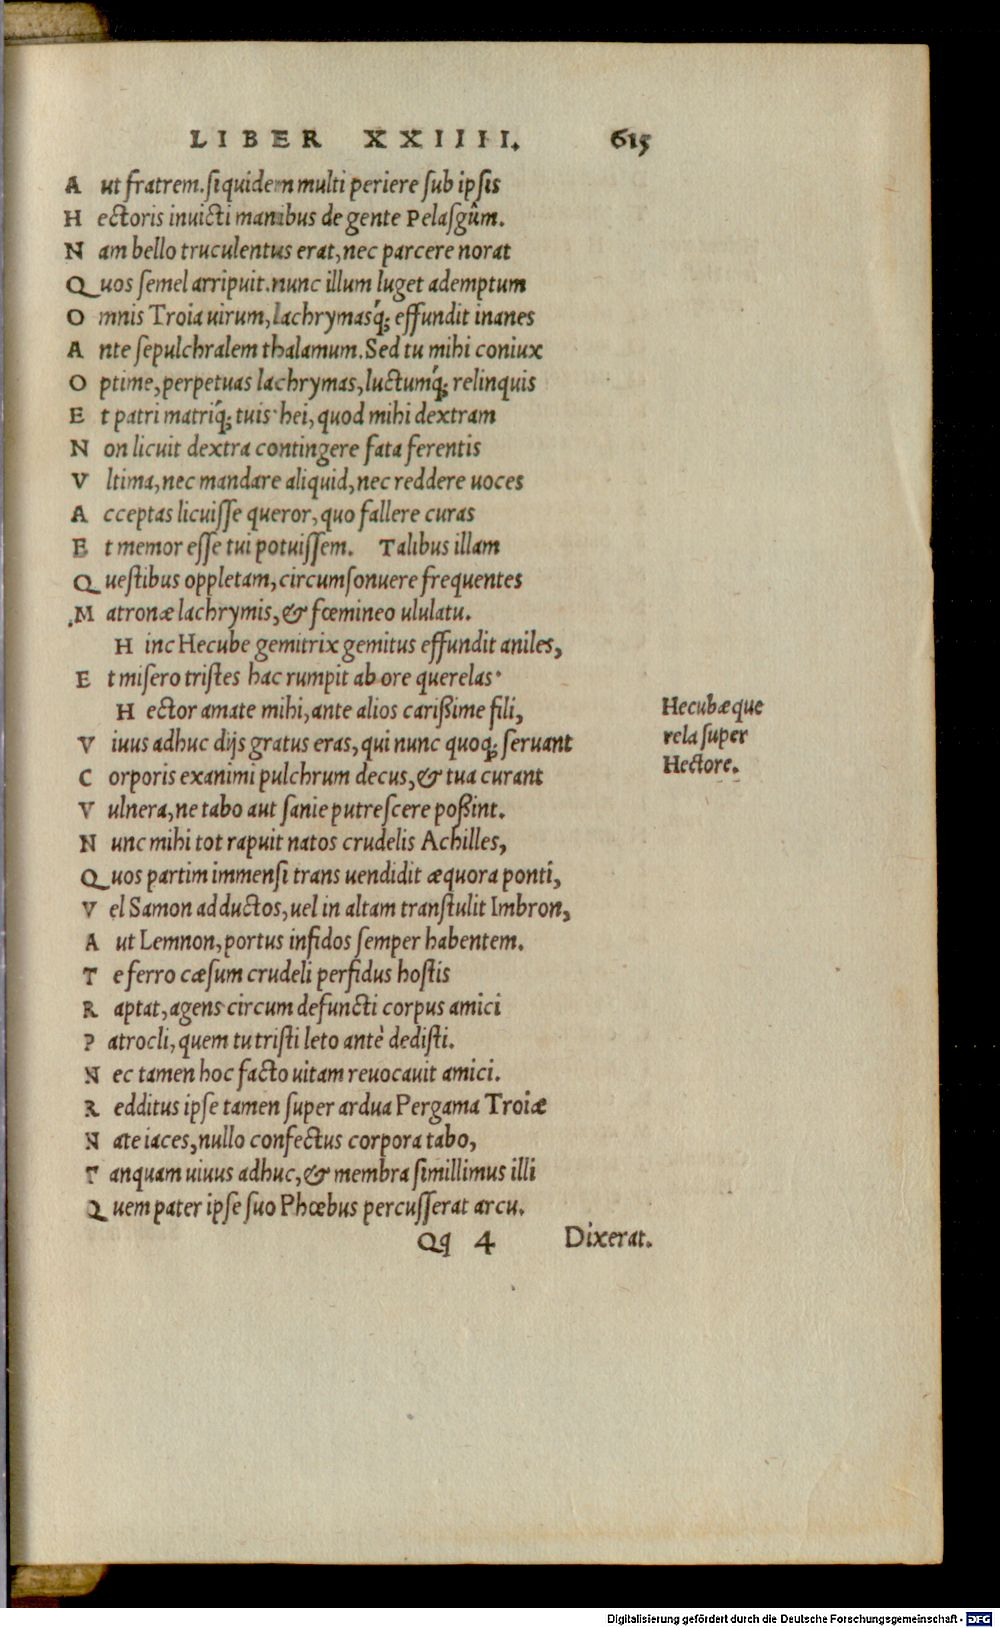 LIBER XXIIII. 615
Aut fratrem. siquidem multi periere sub ipsis
Hectoris inuicti manibus de gente Pelasgûm.
Nam bello truculentus erat, nec parcere norat
Quos semel arripuit. nunc illum luget ademptum
Omnis Troia uirum, lachrymasq́; effundit inanes
Ante sepulchralem thalamum. Sed tu mihi coniux
Optime, perpetuas lachrymas, luctumq́; relinquis
Et patri matriq́; tuis· hei, quod mihi dextram
Non licuit dextra contingere fata ferentis
Vltima, nec mandare aliquid, nec reddere uoces
Acceptas licuiſſe queror, quo fallere curas
Et memor eſſe tui potuiſſem. Talibus illam
Queſtibus oppletam, circumſonuere frequentes
Matronæ lachrymis, & fœmineo ululatu.
Hinc Hecube gemitrix gemitus effundit aniles,
Et misero tristes hac rumpit ab ore querelas·
Hector amate mihi, ante alios carißime fili,
Viuus adhuc dijs gratus eras, qui nunc quoq; seruant
Corporis exanimi pulchrum decus, & tua curant
Vulnera, ne tabo aut sanie putrescere poßint.
Nunc mihi tot rapuit natos crudelis Achilles,
Quos partim immensi trans uendidit æquora ponti,
Vel Samon adductos, uel in altam transtulit Imbron,
Aut Lemnon, portus infidos semper habentem.
Te ferro cæsum crudeli perfidus hostis
Raptat, agens circum defuncti corpus amici
Patrocli, quem tu tristi leto antè dedisti.
Nec tamen hoc facto uitam reuocauit amici.
Redditus ipse tamen super ardua Pergama Troiæ
Nate iaces, nullo confectus corpora tabo,
Tanquam uiuus adhuc, & membra simillimus illi
Quem pater ipse suo Phœbus percusserat arcu.
Qq 4 Dixerat.
Hecubæ que
rela super
Hectore.
Digitalisierung gefördert durch die Deutsche Forschungsgemeinschaft - DFG